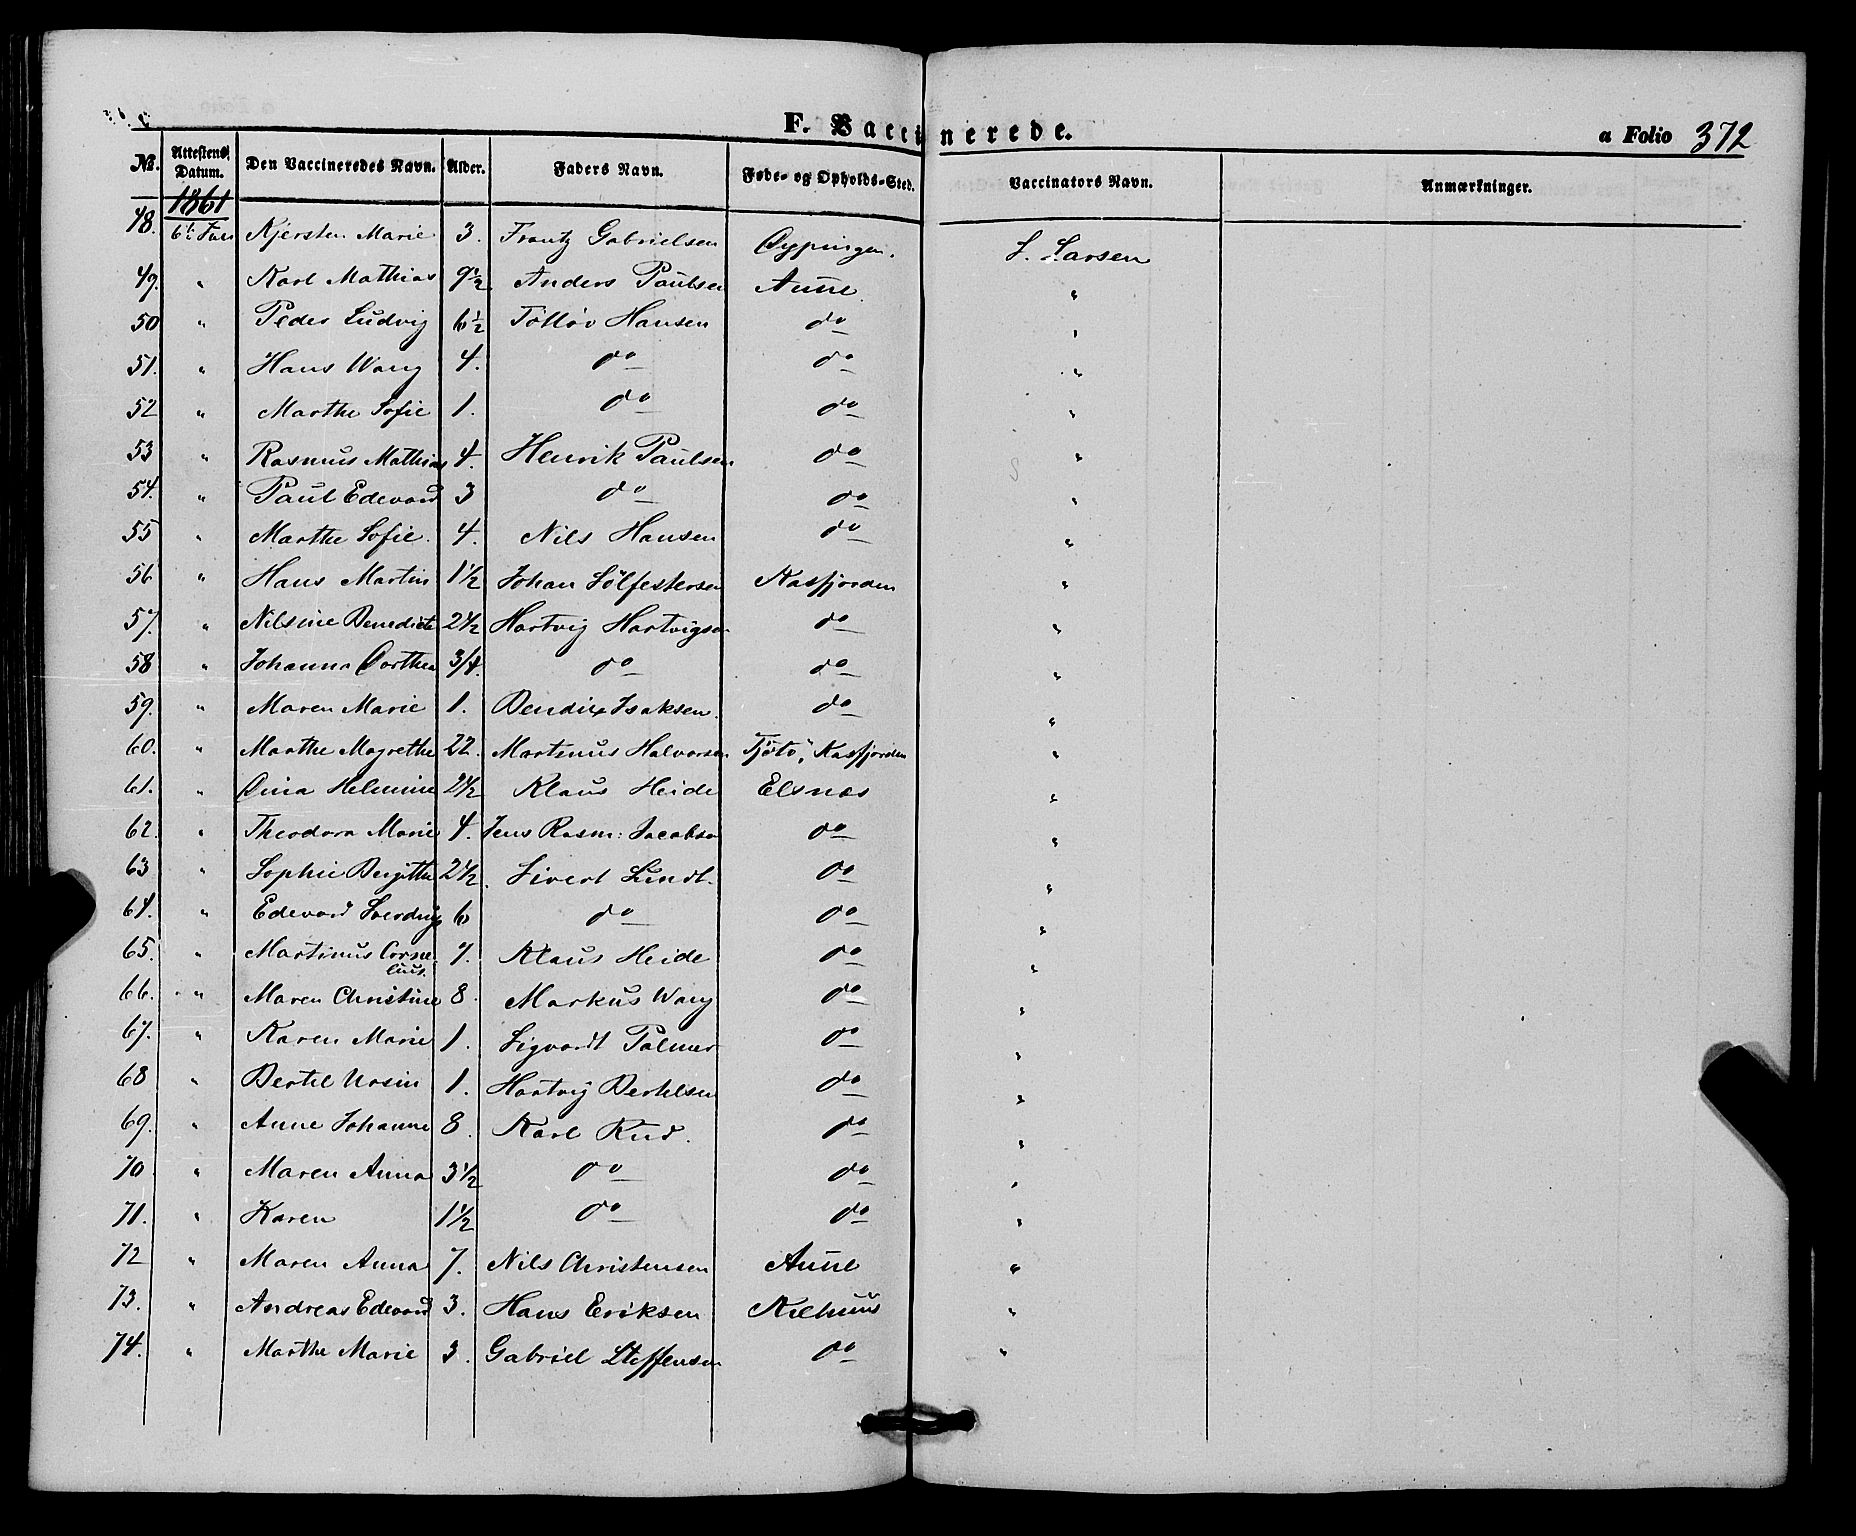 F. Vaccinerede.
a Folio 372
No. Attestens Datum. Den Vaccineredes Navn. Alder. Faders Navn. Føde- og Opholds-Sted. Vaccinators Navn. Anmærkninger.
1861
48. Kjersten Marie 3. Frantz Gabrielsen L. Larsen
49. " Karl Mathias 9½ Anders Paulsen Aune "
50 " Peder Ludvig 6½ Tølløv Hansen do "
51. " Hans Wang 4. do do "
52 " Marthe Sofie 1. do do "
53 " Rasmus Mathias 4. Henrik Paulsen do "
54. " Paul Edevard 3 do do "
55 " Marthe Sofie. 4. Nils Hansen do "
56 " Hans Martin 1½ Johan Sølfestersen Kasfjorden "
57. " Nilsine Benedicte 2½ Hartvig Hartvigsen do "
58 " Johanna Dorthea 3/4. do do "
59. " Maren Marie 1. Bendix Isaksen. do "
60. " Marthe Magrethe 22. Martinus Halvorsen Kasfjorden "
61. " Dina Helmine 2½ Klaus Heide Elsnæs "
62. " Theodora Marie 4. Jens Rasm: Jacobsen do "
63 " Sophie Bergitthe 2½. Sivert Lundt. do "
64. " Edevard 6 do do "
65. " Martinus Corne
lius. 7. Klaus Heide do "
66. " Maren Christine 8. Markus Wang do "
67. " Karen Marie 1. Sigvardt Palmer do "
68 " Bertel Ursin 1. Hartvig Bertelsen do "
69. " Anne Johanne 8. Karl Rud. do "
70 " Maren Anna 3½ do do "
71. " Karen 1½ do do "
72 " Maren Anna 7. Nils Christensen Aune "
73. " Andreas Edevard 3. Hans Eriksen Kilhuus "
74. " Marthe Marie 3. Gabriel Steffensen do "